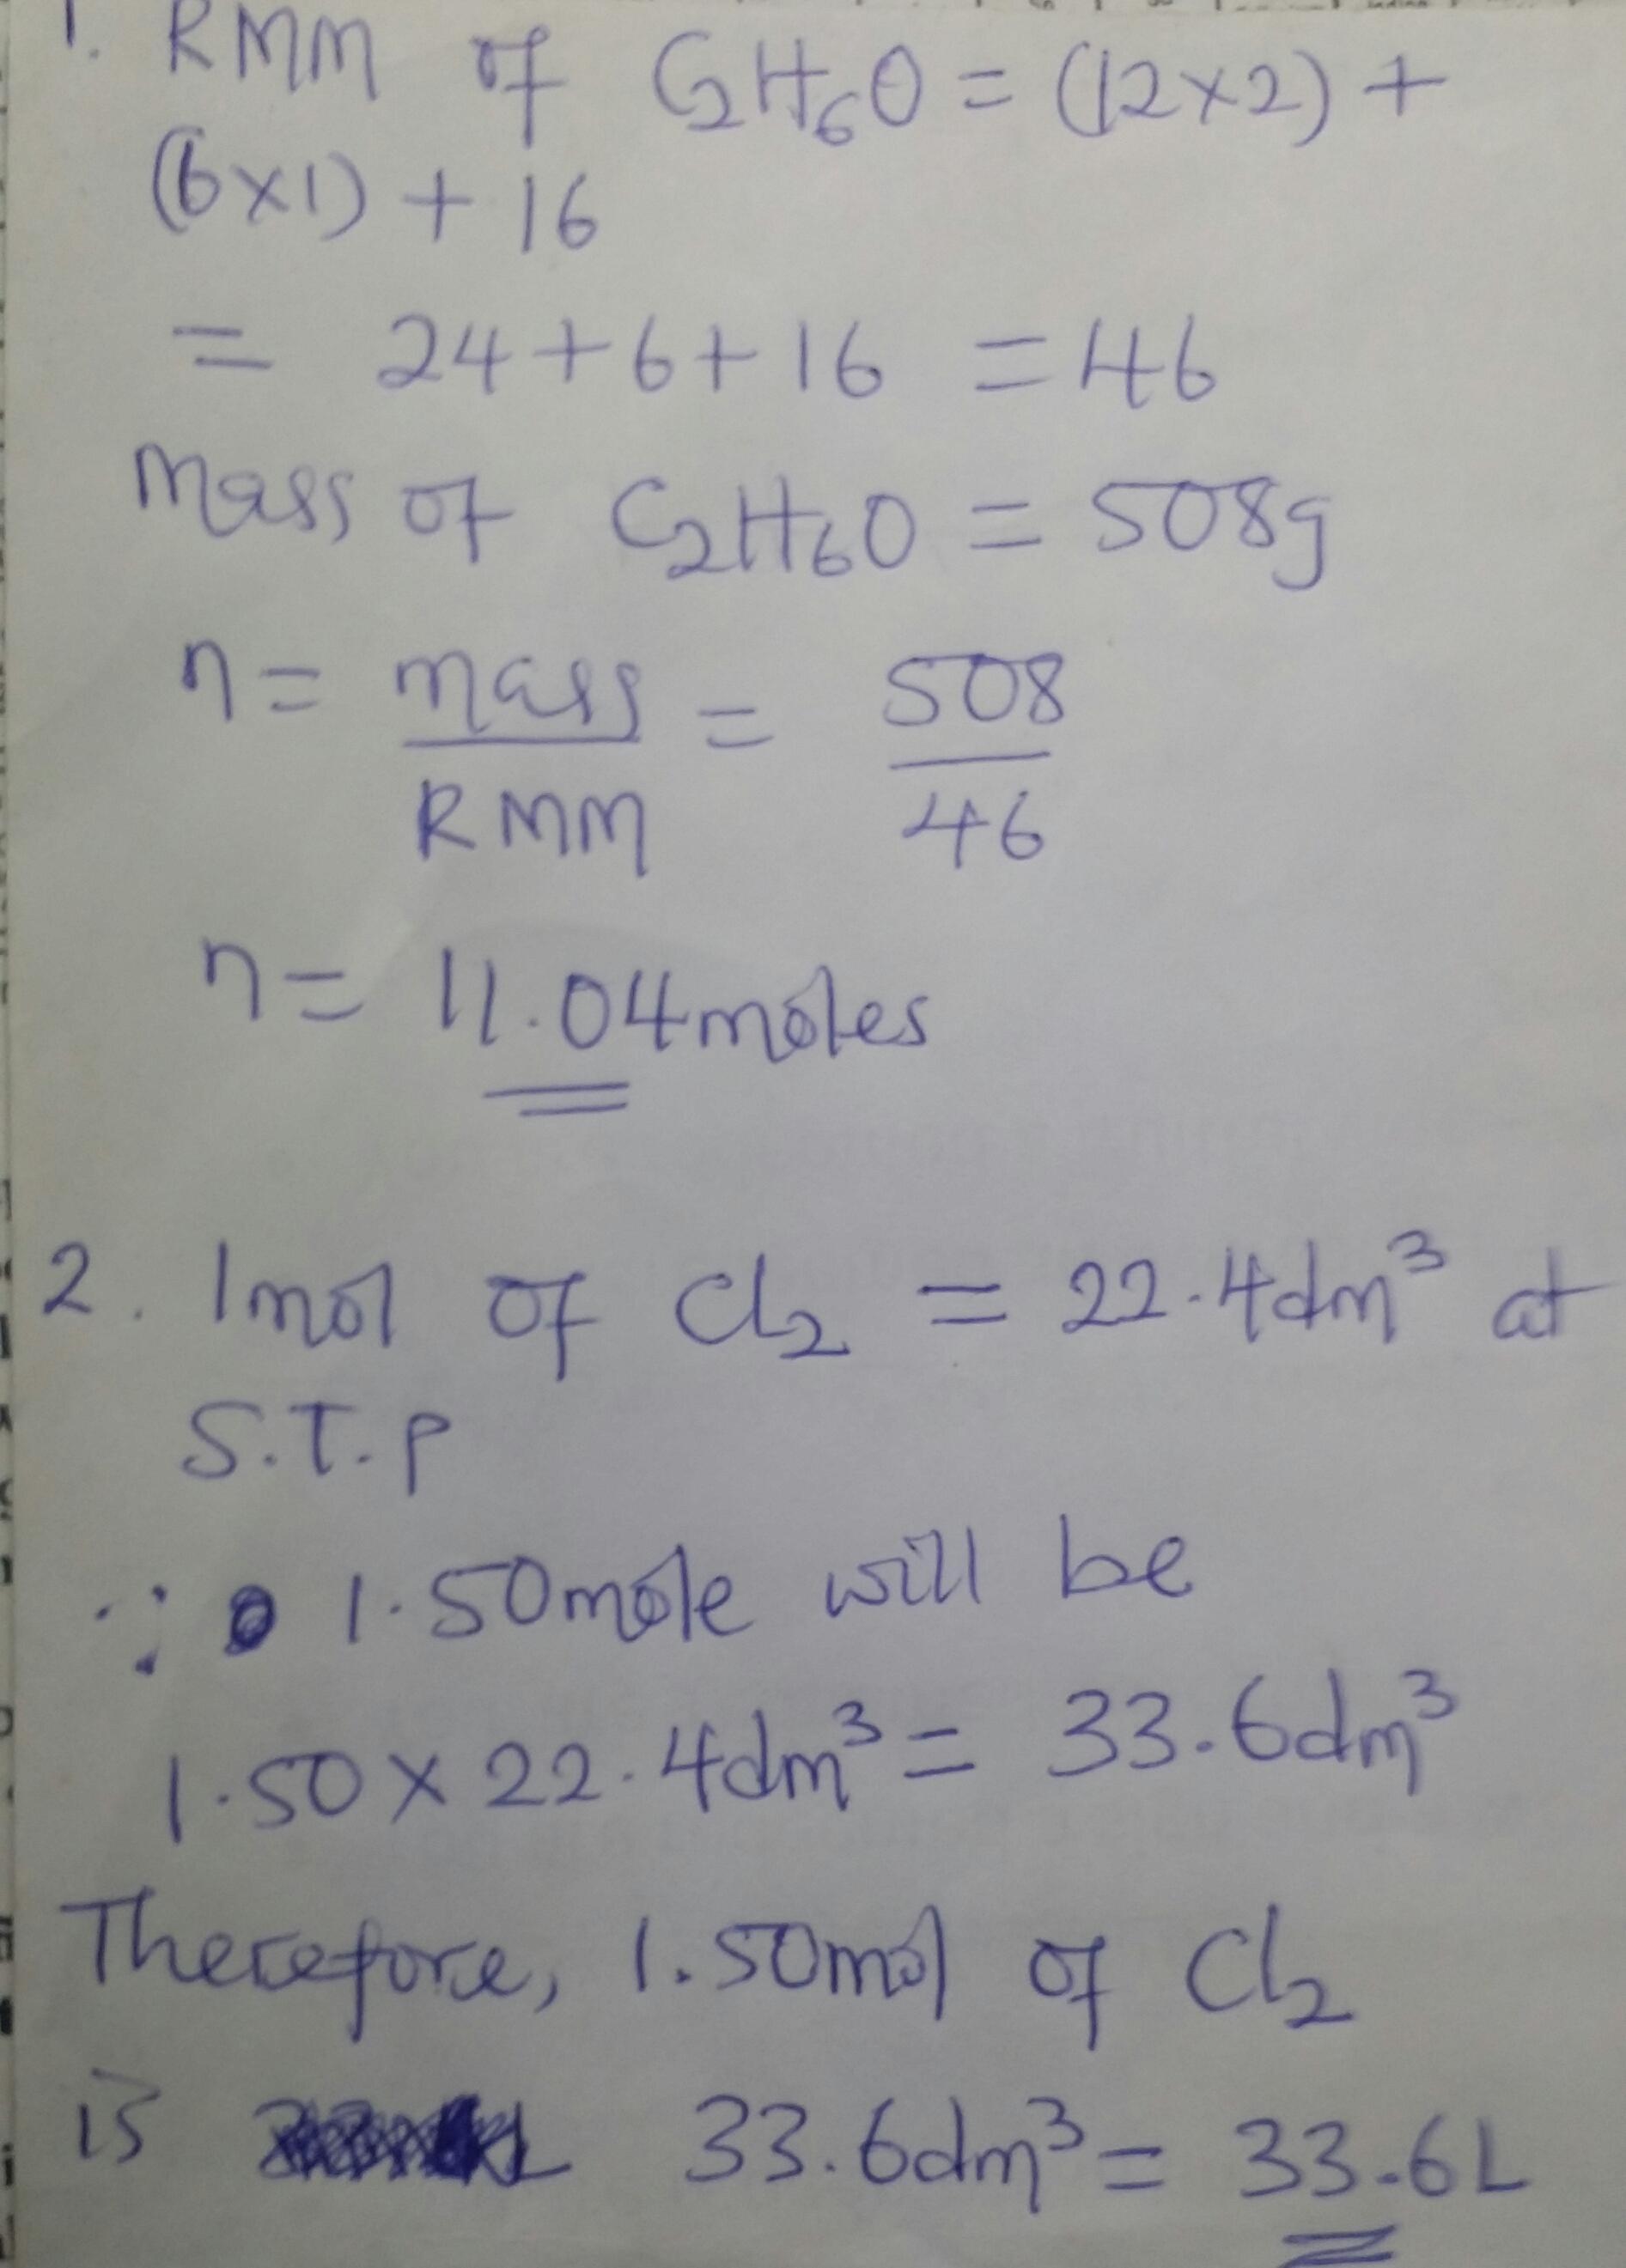 1. RMM of C₂H₆O = (12×2) +
(6×1) + 16
= 24+6+16 = 46
Mass of C₂H₆O = 508g
n = mass/RMM = 508/46
n = 11.04moles
2. 1mol of Cl₂ = 22.4dm³ at
S.T.P
∴ 1.50mole will be
1.50 × 22.4dm³ = 33.6dm³
Therefore, 1.50mol of Cl₂
is 33.6dm³ = 33.6L